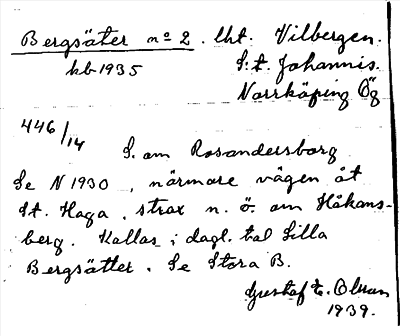 Bergsäter nº 2. lht. Vilbergen.
kb 1935 S:t. Johannis.
Norrköping Ög
446/14
S. om Rosandersborg
Se N 1930, närmare vägen åt
St. Haga, strax n. ö. om Håkans-
berg. Kallas i dagl. tal Lilla
Bergsättet. Se Stora B.
Gustaf E. Olsson
1939.